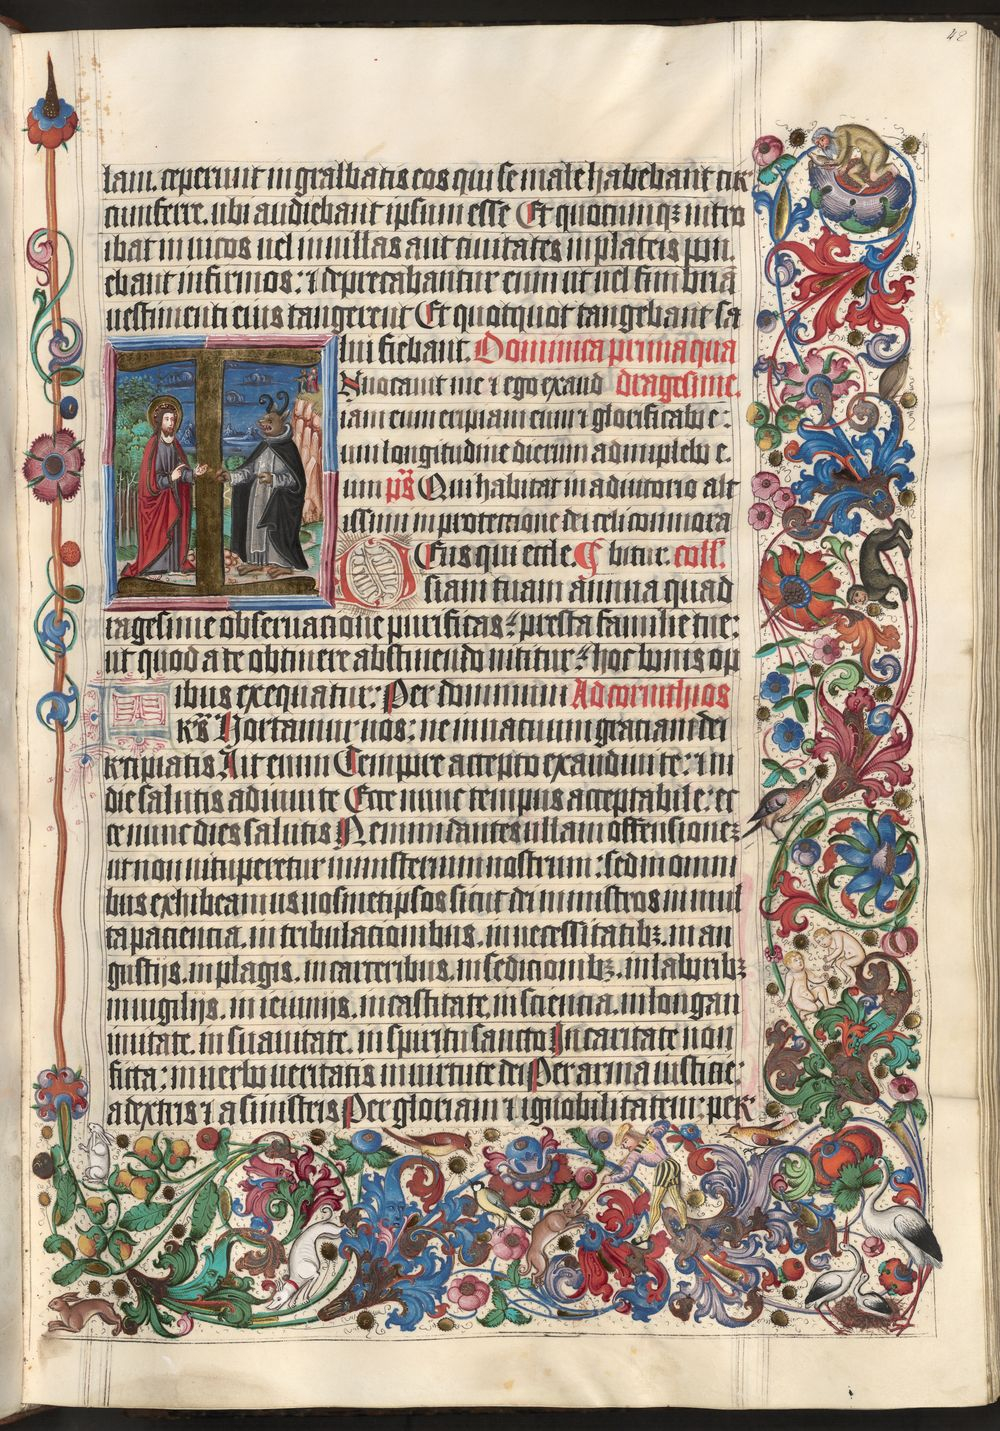 42
lam. ceperunt in grabbatis eos qui se male habebant cir
cumferre. ubi audiebant ipsum esse Et quocunqꝫ intro
ibat in vicos uel in villas aut ciuitates in plateis pon
ebant infirmos: ⁊ deprecabantur eum ut uel fimbriā
uestimenti eius tangerent Et quotquot tangebant sa
lui fiebant. Dominica prima qua
Nuocauit me ⁊ ego exaud dragesime.
iam eum eripiam eum ⁊ glorificabo e:
um longitudine dierum adimplebo e.
um ps̄ Qui habitat in adiutorio alt
issimi in protectione dei celi commora
Eus qui eccle. bitur. coll.
siam tuam annua quad
ragesime obseruatione purificas: presta familie tue:
ut quod a te obtinere abstinendo nititur: hoc bonis op
ibus exequatur: Per dominum Ad corinthios
Hortamur uos: ne in uacuum graciam dei
recipiatis Ait enim Tempore accepto exaudiui te: ⁊ in
die salutis adiuui te Ecce nunc tempus acceptabile: ec
ce nunc dies salutis Nemini dantes ullam offensionē
ut non uituperetur ministerium nostrum: sed in omni
bus exhibeamus nosmetipsos sicut dei ministros in mul
ta paciencia. in tribulacionibus. in necessitatibꝫ. in an
gustijs. in plagis. in carceribus. in sedicionibꝫ. in laboribꝫ
in uigilijs. in ieiunijs. in castitate. in sciencia. in longan
imitate. in suauitate. in spiritu sancto In caritate non
ficta: in uerbo ueritatis in uirtute dei Per arma iusticie:
a dextris ⁊ a sinistris Per gloriam ⁊ ignobilitatem: per